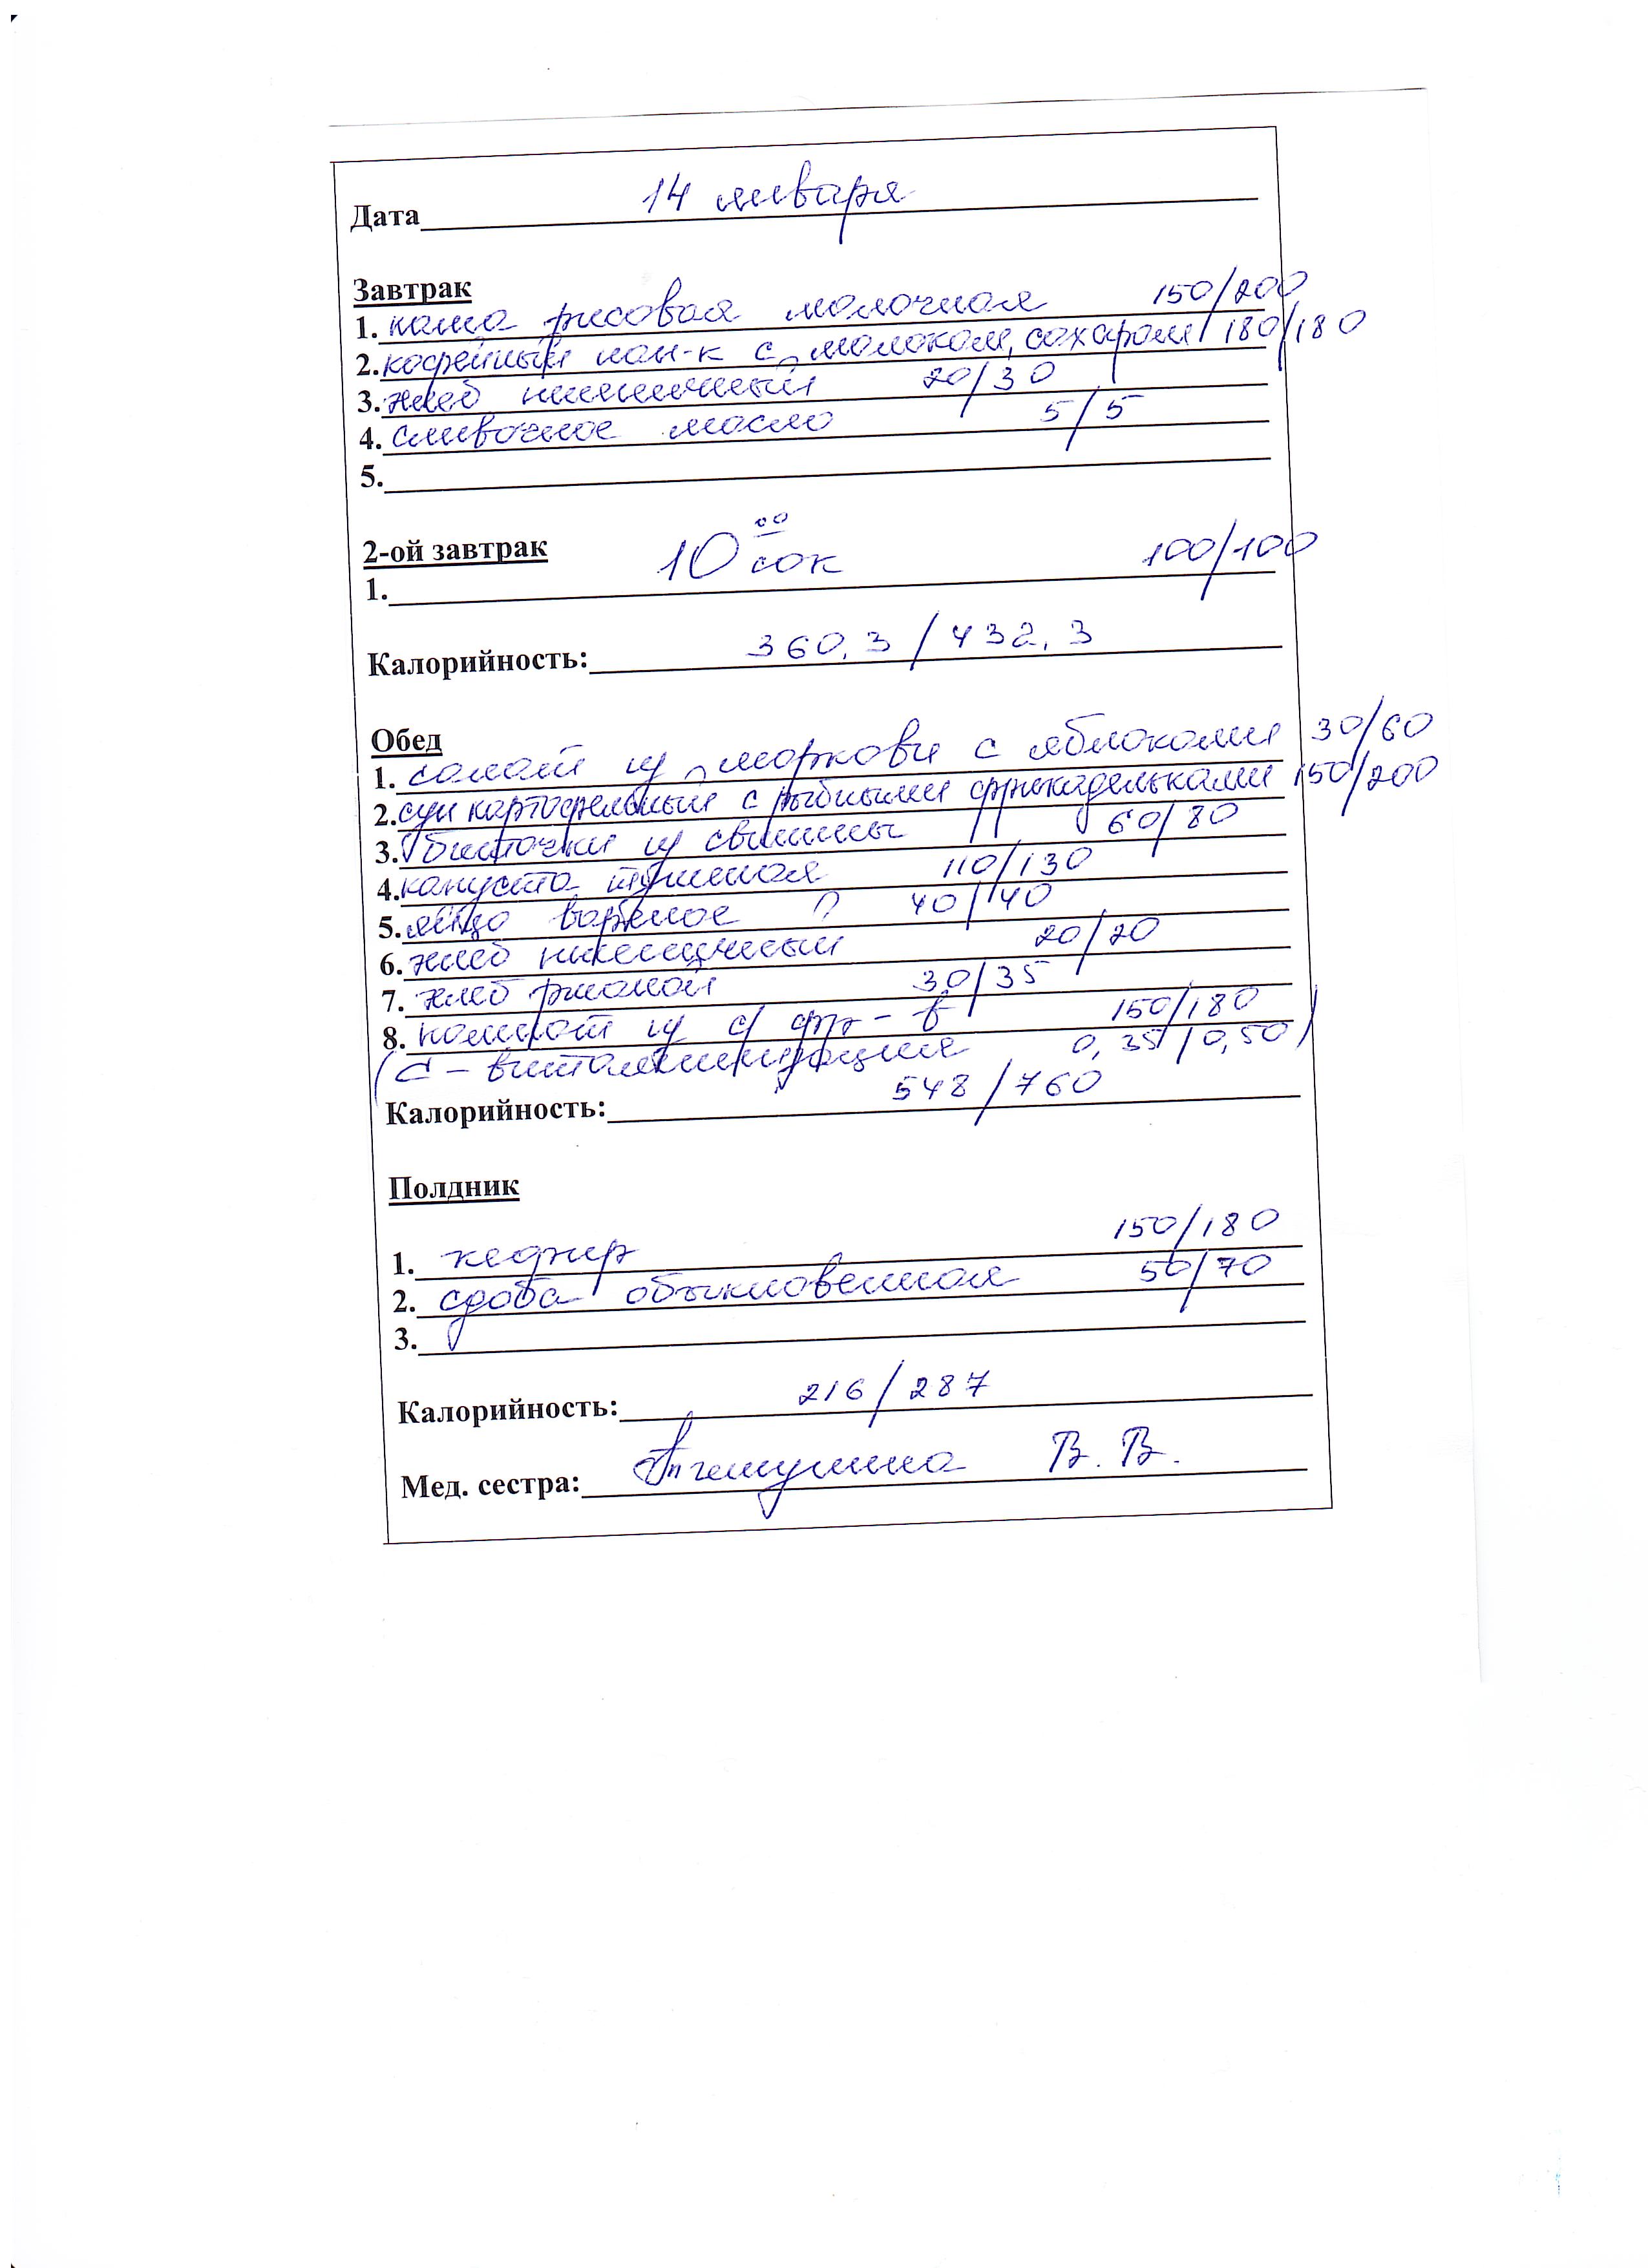 Дата 14 января
Завтрак
1. каша рисовая молочная 150/200
2. кофейный нап-к с молоком, сахаром 180/180
3. хлеб пшеничный 20/30
4. сливочное масло 5/5
5.
2-ой завтрак
1. 10 00 сок 100/100
Калорийность: 360,3 / 432,3
Обед
1. салат из моркови с яблоками 30/60
2. суп картофельный с рыбными фрикадельками 150/200
3. биточки из свинины 60/80
4. капуста тушеная 110/130
5. яйцо вареное 40/40
6. хлеб пшеничный 20/20
7. хлеб ржаной 30/35
8. компот из с/фр-в 150/180
(С - витаминизация 0,35/0,50)
Калорийность: 548/760
Полдник
1. кефир 150/180
2. сдоба обыкновенная 50/70
3.
Калорийность: 216/287
Мед. сестра: В. В.